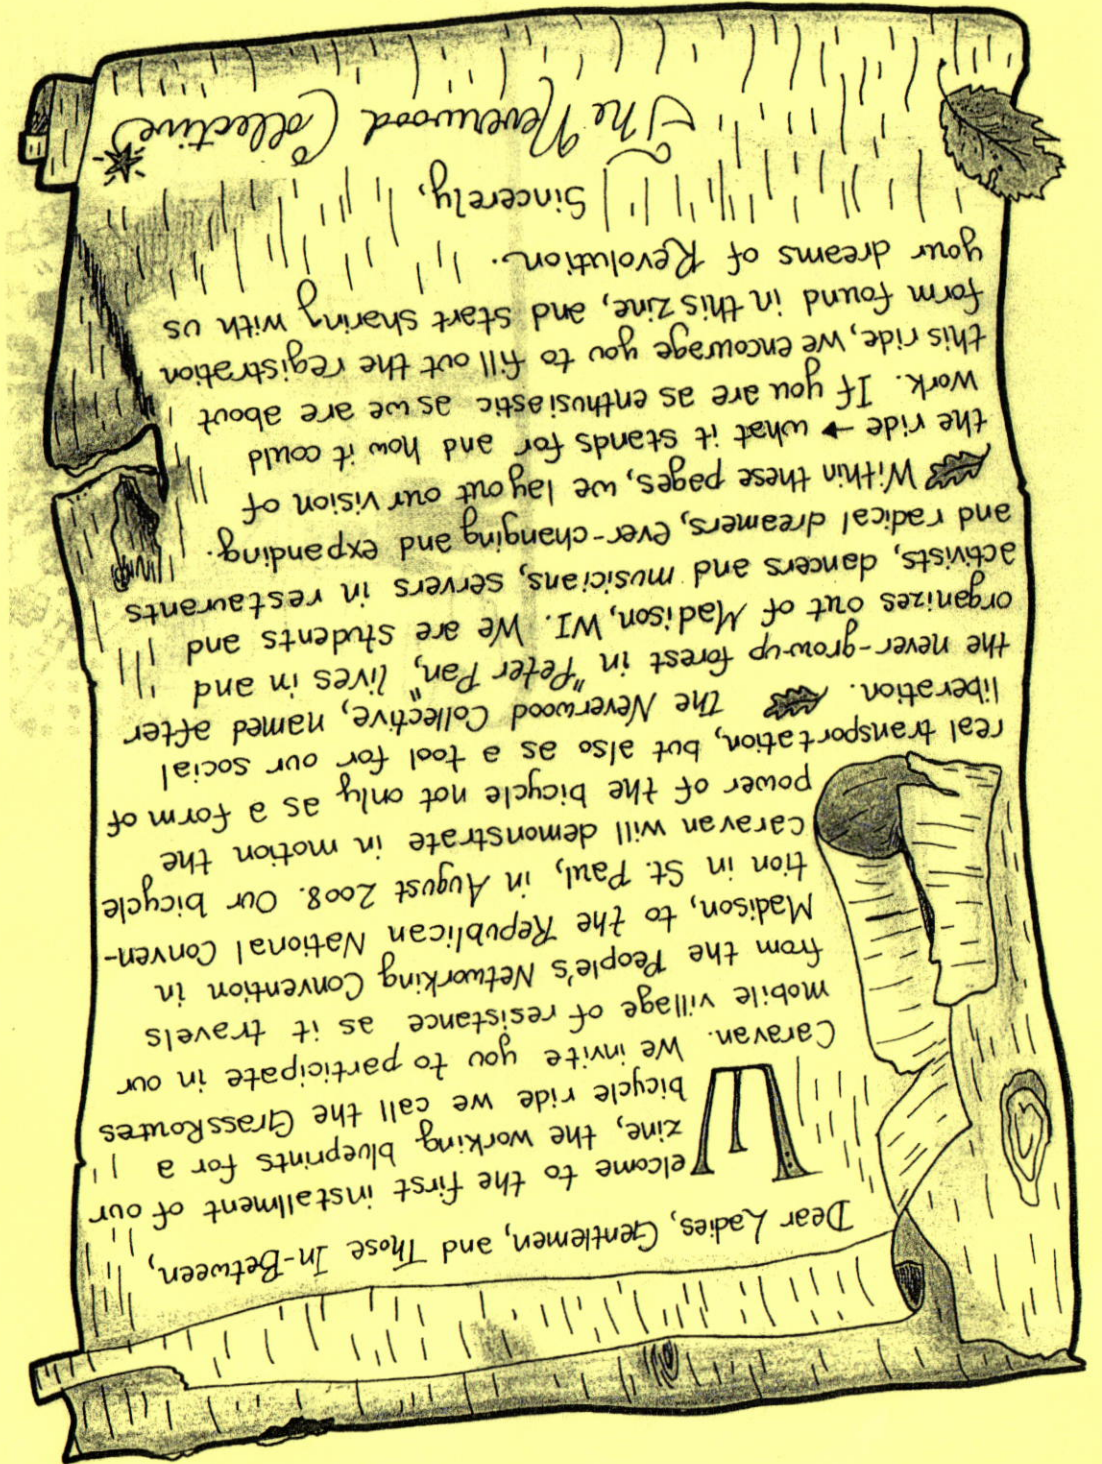 Dear Ladies, Gentlemen, and Those In-Between,
Welcome to the first installment of our
zine, the working blueprints for a
bicycle ride we call the GrassRoutes
Caravan. We invite you to participate in our
mobile village of resistance as it travels
from the People's Networking Convention in
Madison, to the Republican National Conven-
tion in St. Paul, in August 2008. Our bicycle
caravan will demonstrate in motion the
power of the bicycle not only as a form of
real transportation, but also as a tool for our social
liberation. The Neverwood Collective, named after
the never-grow-up forest in "Peter Pan," lives in and
organizes out of Madison, WI. We are students and
activists, dancers and musicians, servers in restaurants
and radical dreamers, ever-changing and expanding.
Within these pages, we lay out our vision of
the ride → what it stands for and how it could
work. If you are as enthusiastic as we are about
this ride, we encourage you to fill out the registration
form found in this zine, and start sharing with us
your dreams of Revolution.
Sincerely,
The Neverwood Collective